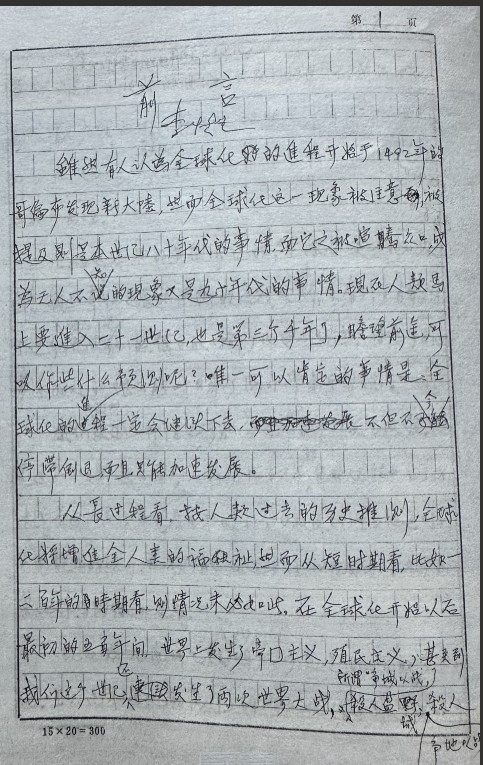 第 1 页
前言
李慎之
雖然有人认为全球化的進程开始于1492年的
哥倫布发现新大陸，然而全球化这一现象被注意，被
提及则是本世纪八十年代的事情，而它之被喧騰众口，成
为无人不知的现象又是九十年代的事情。现在人類马
上要進入二十一世纪，也是第三个千年了，瞻望前途，可
以作些什么预测呢？唯一可以肯定的事情是：全
球化的進程一定会继续下去，不但不会
停滞倒退而且只能加速发展。
从長过程看，按人類过去的历史推测，全球
化将增進全人类的福祉，然而从短时期看，比如一
二百年的时期看，则情况未必如此。在全球化开始以后
最初的五百年间，世界上发生了帝国主义，殖民主义，甚至到
我们这个世纪还发生了两次世界大战，
所謂“争城以战，
殺人盈野，殺人
城
争地以战
15×20=300